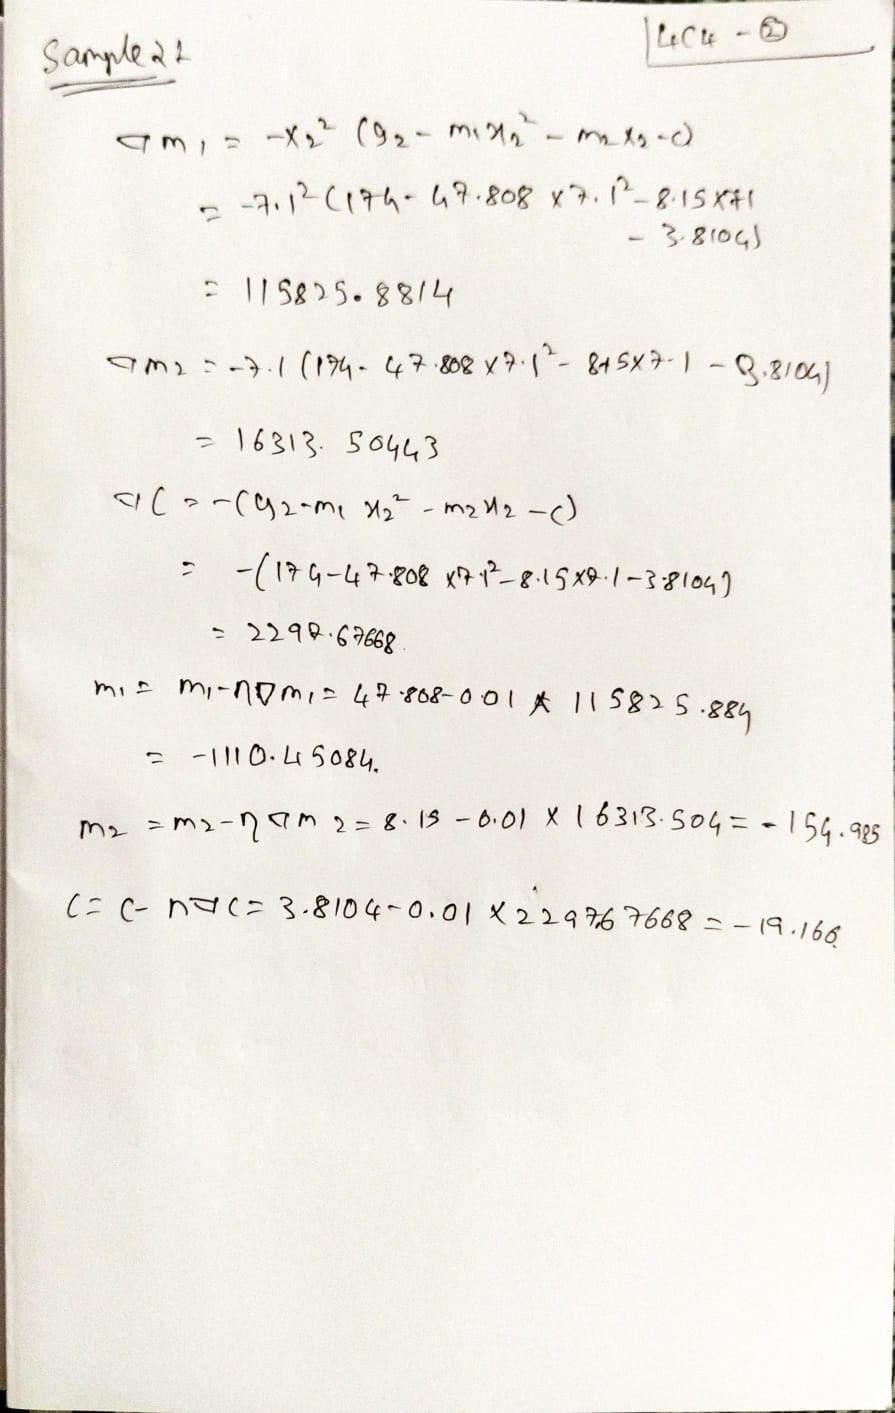 Sample 22
LC4 - ②
∇m₁ = -x₂² (y₂ - m₁x₂² - m₂x₂ - c)
= -7.1² (174 - 47.808 × 7.1² - 8.15 × 71
- 3.8104)
= 115825.8814
∇m₂ = -7.1 (174 - 47.808 × 7.1² - 815 × 7.1 - 3.8104)
= 16313.50443
∇C = -(y₂ - m₁ x₂² - m₂x₂ - c)
= -(174 - 47.808 × 7.1² - 8.15 × 7.1 - 3.8104)
= 2297.67668
m₁ = m₁ - η∇m₁ = 47.808 - 0.01 * 115825.884
= -1110.45084.
m₂ = m₂ - η∇m₂ = 8.15 - 0.01 × 16313.504 = -154.985
C = C - η∇C = 3.8104 - 0.01 × 229767668 = -19.166